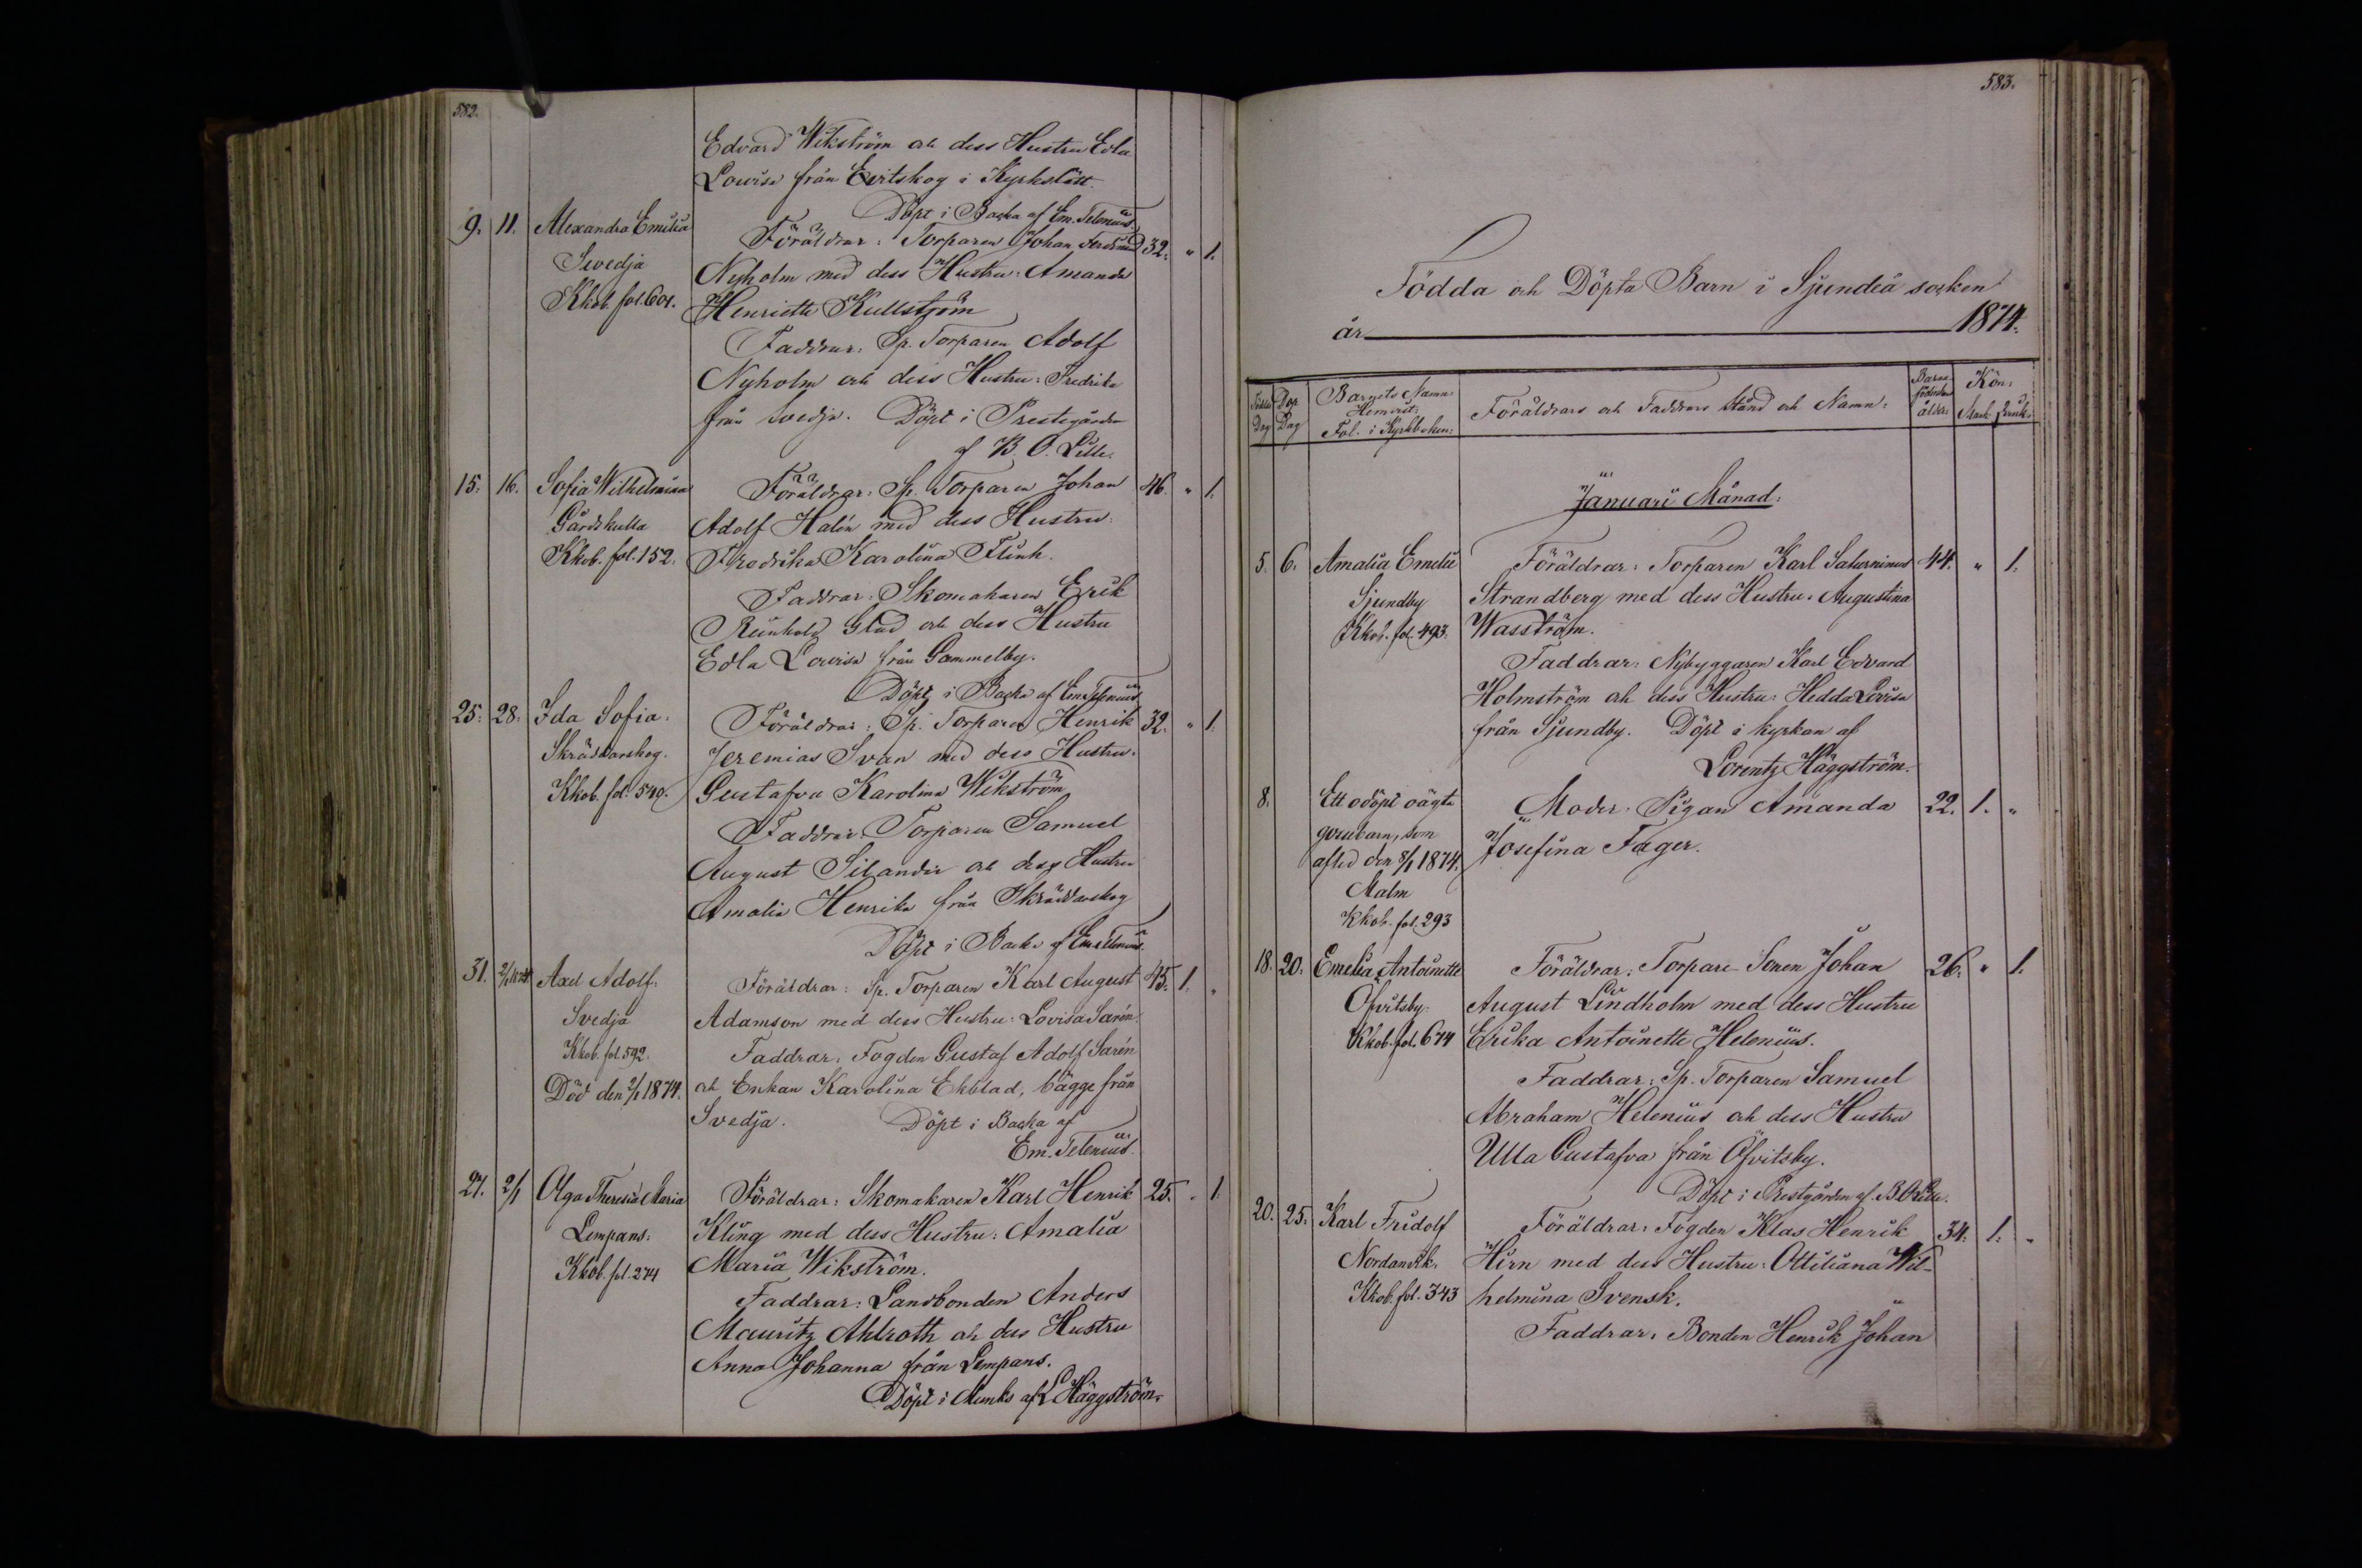 582.
Edvard Wikström och dess Hustru Edla
Lowisa från Evitskog i Kyrkslätt.
Döpt i Backa af Em. Telenius.
9. 11. Alexandra Emilia Föräldrar: Torparen Johan Ferdinand 32. " 1.
Svedja Nyholm med dess Hustru: Amanda
Kkob. fol. 601. Henriette Kullström
Faddrar: Sp. Torparen Adolf
Nyholm och dess Hustru: Fredrika
från Svedja. Döpt i Prestegården
af B. O. Lille.
15. 16. Sofia Wilhelmina Föräldrar: Sp. Torparen Johan 46. " 1.
Gårdskulla Adolf Halén med dess Hustru:
Kkob. fol. 152. Fredrika Karolina Flink.
Faddrar: Skomakaren Erik
Reinhold Glad och dess Hustru
Edla Lovisa från Gammelby.
Döpt i Backa af Em. Telenius
25. 28. Ida Sofia. Föräldrar: Sp. Torparen Henrik 32. " 1.
Skräddarskog. Jeremias Svan med dess Hustru.
Kkob. fol. 540. Gustafva Karolina Wikström
Faddrar: Torparen Samuel
August Silander och dess Hustru
Amalia Henrika från Skräddarskog
Döpt i Backa af Em. Telenius.
31. 2/1 1874 Axel Adolf. Föräldrar: Sp. Torparen Karl August 45. 1. "
Svedja Adamson med dess Hustru: Lovisa Sarén.
Kkob. fol. 592. Faddrar: Fogden Gustaf Adolf Sarén
Död den 2/1 1874. och Enkan Karolina Ekblad, bägge från
Svedja. Döpt i Backa af
Em. Telenius.
27. 2/1 Olga Theresia Maria Föräldrar: Skomakaren Karl Henrik 25. " 1.
Lempans: Kling med dess Hustru: Amalia
Kkob. fol. 274 Maria Wikström.
Faddrar: Landbonden Anders
Mauritz Ahlroth och dess Hustru
Anna Johanna från Lempans.
Döpt i Munks af L Häggström.
583.
Födda och Döpta Barn i Sjundeå socken
år 1874.
Födelse Dag Dop Dag Barnets Namn: Hemvist: Fol. i Kyrkboken: Föräldrars och Faddrars Stånd och Namn: Barnaföderskans ålder: Kön: Mank. Qvink.
Januari Månad:
5. 6. Amalia Emelie Föräldrar: Torparen Karl Saturninus 44. " 1.
Sjundby Strandberg med dess Hustru: Augustina
Kkob. fol. 493. Wasström.
Faddrar: Nybyggaren Karl Edvard
Holmström och dess Hustru: Hedda Lovisa
från Sjundby. Döpt i kyrkan af
Lorentz Häggström.
8. Ett odöpt oägta Moder: Pigan Amanda 22. 1. "
gossebarn, som Josefina Fager.
afled den 8/1 1874.
Malm
Kkob. fol. 293
18. 20. Emelia Antoinette Föräldrar: Torpare Sonen Johan 26. " 1.
Öfvitsby. August Lindholm med dess Hustru
Kkob. fol. 674 Erika Antoinette Helenius.
Faddrar: Sp. Torparen Samuel
Abraham Helenius och dess Hustru
Ulla Gustafva från Öfvitsby.
Döpt i Prestgården af B. O. Lille.
20. 25. Karl Fridolf Föräldrar: Fogden Klas Henrik 34. 1. "
Nordanvik. Hirn med dess Hustru: Ottiliana Wil-
Kkob. fol. 343 helmina Svensk.
Faddrar: Bonden Henrik Johan